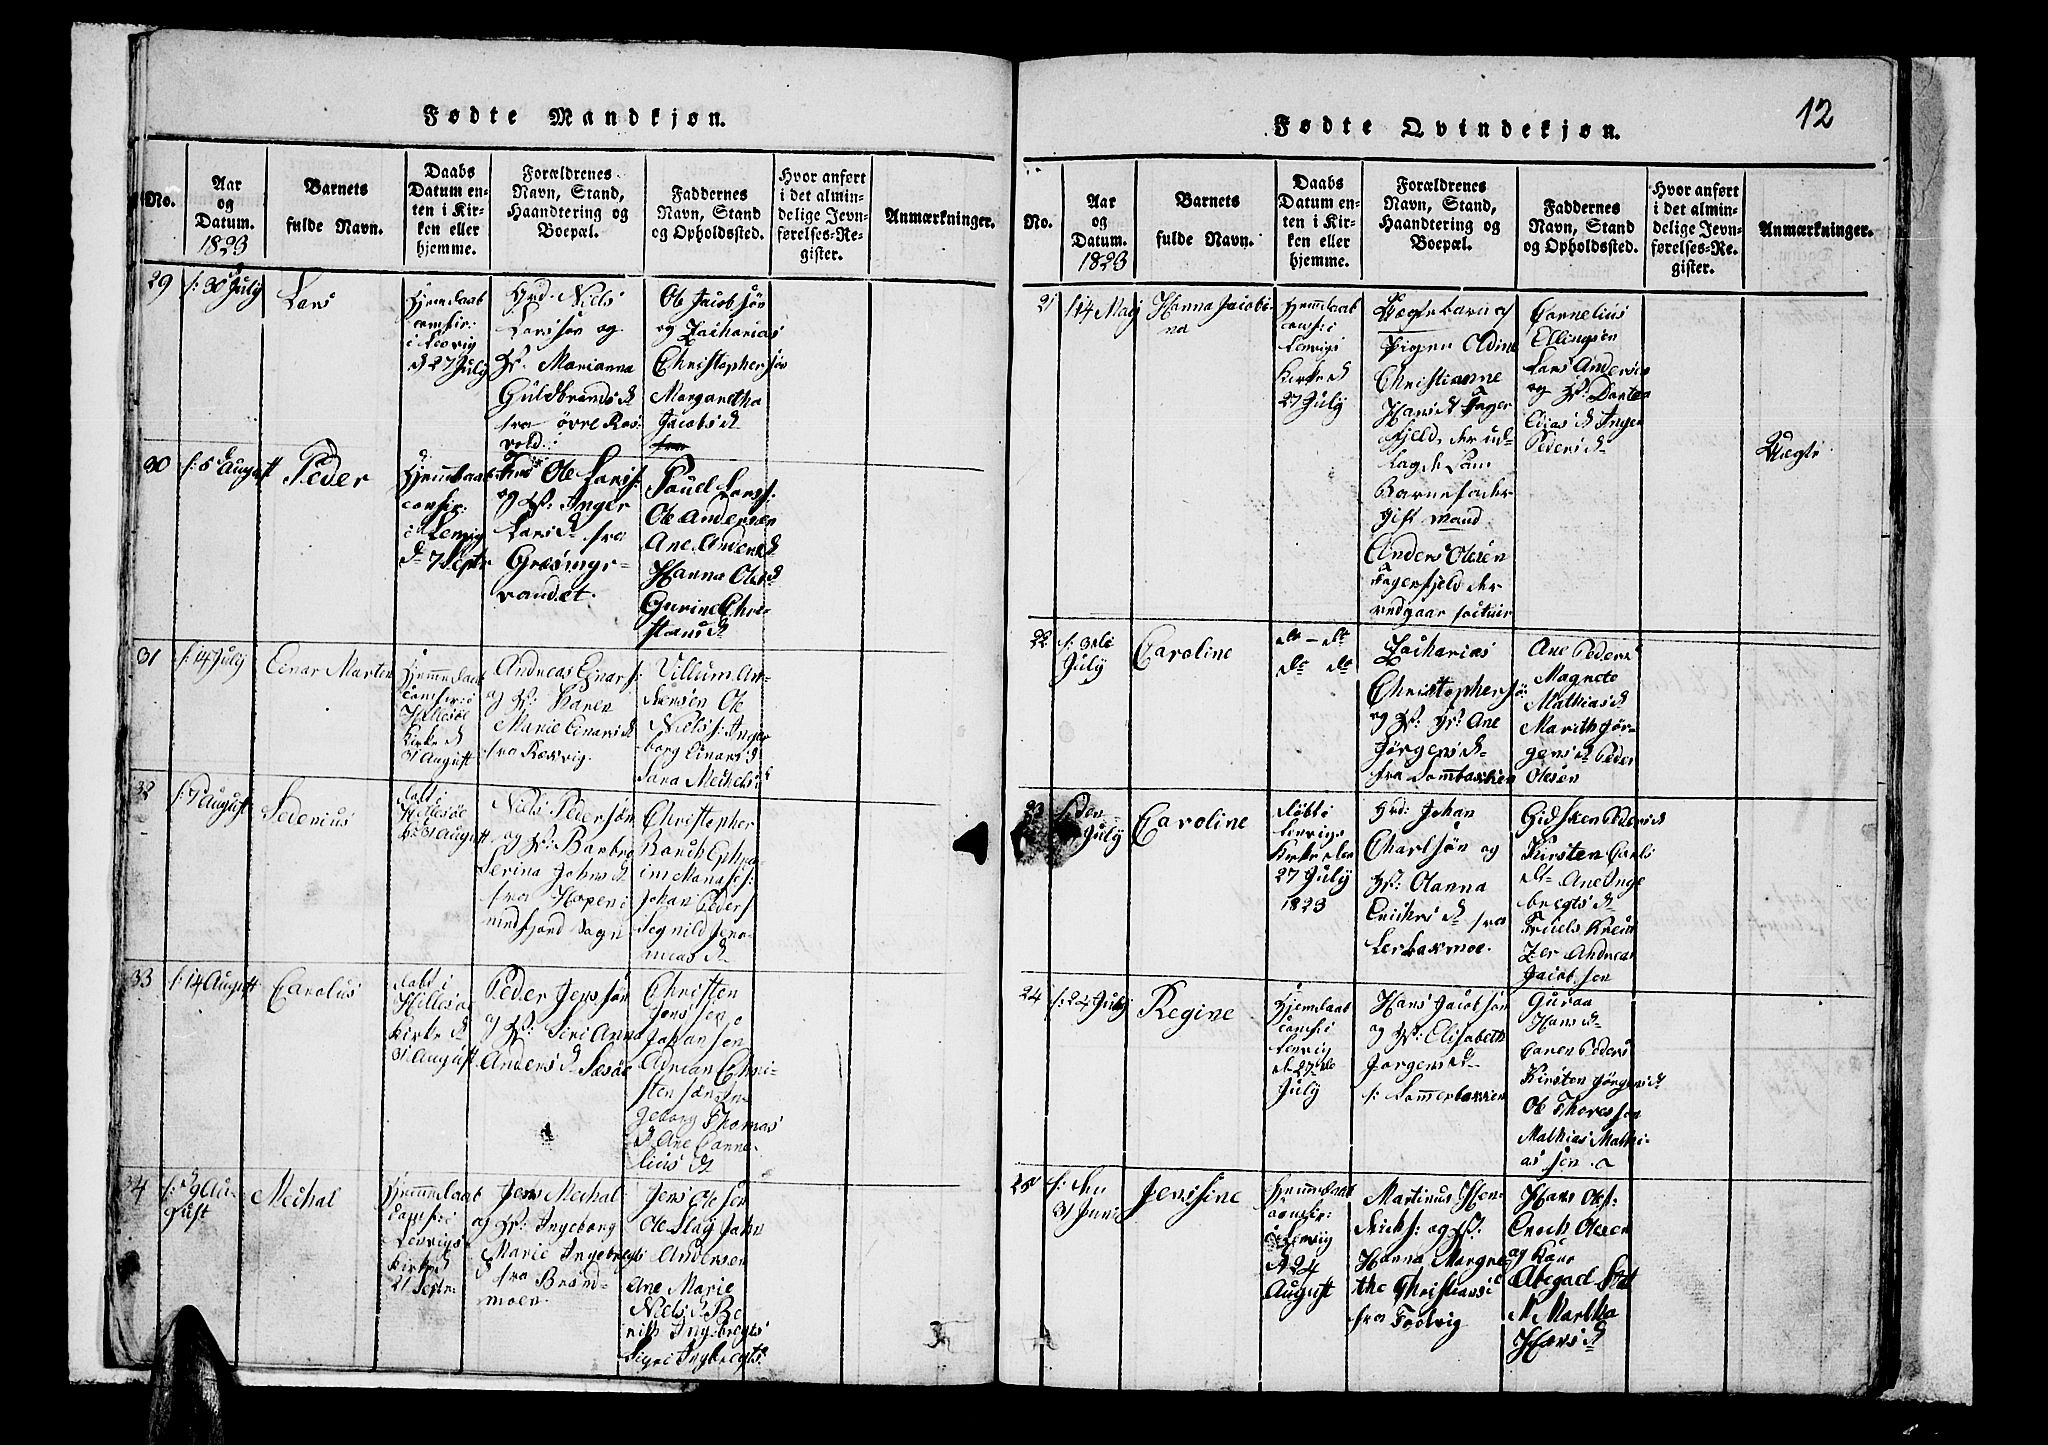 Fødte Mandkjøn.
No.
Aar
og
Datum.
1823
Barnets
fulde Navn.
Daabs
Datum en-
ten i Kir-
ken eller
hjemme.
Forældrenes
Navn, Stand,
Haandtering og
Boepæl.
Faddernes
Navn, Stand
og Opholdssted.
Hvor anført
i det almin-
delige Jevn-
førelses-Re-
gister.
Anmærkninger.
29
f: 30 July
Lars
Hjemdaab
confir:
i Lenvig
d 27 July
Niels
Larssøn og
H: Marianna
Guldbrands d
fra øvre Ros
vold.
Ole Jacobsøn
og Zacharias
Christophersøn
Margaretha
Jacobs d
fra
30
f: 5 August
Peder
Hjemdaab
confir:
i Lenvig
d 7 Septr
Ole Lars:
og H: Inger
Lars d. fra
Græsmyr-
vandet.
Pouel Larss:
Ole Andersen
Ane d
Hanna Oles d
Gurine Chri-
stians d
31
f: 14 July
Einar Martin
Hjemmedaab
confir: i
Hillesøe
Kirke d
31 August
Andreas Einars:
og H: Karen
Marie Einars d
fra
Villum An-
dersen Ole
Niels: Inge
borg Einars d
Sara Michels d
32
f: 7 August
Sedenius
døbt i
Hillesøe
K: 31 August
Niels Pedersøn
og H: Barbro
Serina Johns d
fra Hopen i
Christopher
Ephra
im Manases:
Johan Peders
Jere-
mias d
33
f: 14 August
Carolus
døbt i
Hillesøe
Kirke d
31 August
Peder Jenssøn
og H: Siri Anna
Anders d
Christen
Jenssen
Johansen
Adrian Chri-
stensøn In
geborg Thomas
d Ane Corne-
lius d
34
f: 9 Au-
gust
Mechal
Hjemmedaab
confir: i
Lenvigs
Kirke d
21 Septr:
Jens Mechal
og H: Ingeborg
Marie Ingebregts
d fra Brand-
moen.
Jens Olsen
Ole John
Andersen
Ane Marie
Niels d Be
rith Ingebregts
Sigri Ingbregts
Fødte Qvindekjøn.
12
No.
Aar
og
Datum.
1823
Barnets
fulde Navn.
Daabs
Datum en-
ten i Kir-
ken eller
hjemme.
Forældrenes
Navn, Stand,
Haandtering og
Boepæl.
Faddernes
Navn, Stand
og Opholdssted.
Hvor anført
i det almin-
delige Jevn-
førelses-Re-
gister.
Anmærkninger.
21
f 14 May
Hanna Jacobi-
na
Hjemdaab
conf: i
Lenvigs
Kirke d
27 July
Uægte barn af
Pigen Oldine
Christianne
Hans d Fager
fjeld, der ud-
lagde som
Barnefader
gift mand
Anders Olesen
Fagerfjeld der
vedgaar factum
Cornelius
Ellingsen
Lars Andersen
og H: Dortea
Elias d Inger
Peders d
Uægte
22
f: 3de
July
Caroline
do – do
do do
Zacharias
Christophersøn
og H: Ane
Jørgens d
fra Sommerbakken
Ane Peders
Magrete
Mathias d
Marith Jør-
gens d Peder
Olesen
23
f: den
July
Caroline
døbt i
Lenvigs
Kirke den
27 July
1823
Johan
Charlsøn og
H: Olanna
Erichs d fra
Lerbaxmoe.
Gidsken Peders d
Kirsten Carls
d Ane Inge
bregts d
Truels Kreut
zer Andreas
Jacobsen
24
f: 24 July
Regine
Hjemdaab
conf: i
Lenvig
d 27de
July
Hans Jacobsøn
og H: Elisabeth
Jørgens d
f: Sommerbakken
Guraa
Hans d
Caren Peders
Kirsten Jørgens d
Ole Thoresen
Mathias Mathi-
assen
25
f: den
31 Juni
Jensine
Hjemmedaab
confir:
i Lenvig
d 24
August
Martinus Hen
drichs: og H:
Hanna Margre
the Christians d
fra Foolvig
Hans Ols:
Enoch Olesen
og Kone
Abegael
Martha
Hans d